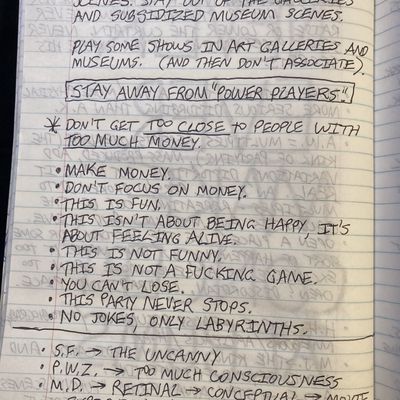 SCENES. STAY OUT OF THE GALLERIES
AND SUBSIDIZED MUSEUM SCENES.
PLAY SOME SHOWS IN ART GALLERIES AND
MUSEUMS. (AND THEN DON'T ASSOCIATE).
STAY AWAY FROM "POWER PLAYERS".
* DON'T GET TOO CLOSE TO PEOPLE WITH
TOO MUCH MONEY.
• MAKE MONEY.
• DON'T FOCUS ON MONEY.
• THIS IS FUN.
• THIS ISN'T ABOUT BEING HAPPY, IT'S
ABOUT FEELING ALIVE.
• THIS IS NOT FUNNY.
• THIS IS NOT A FUCKING GAME.
• YOU CAN'T LOSE.
• THIS PARTY NEVER STOPS.
• NO JOKES, ONLY LABYRINTHS.
• S.F. → THE UNCANNY
• P.W.Z. → TOO MUCH CONSCIOUSNESS
• M.D. → RETINAL → CONCEPTUAL → MOVIE